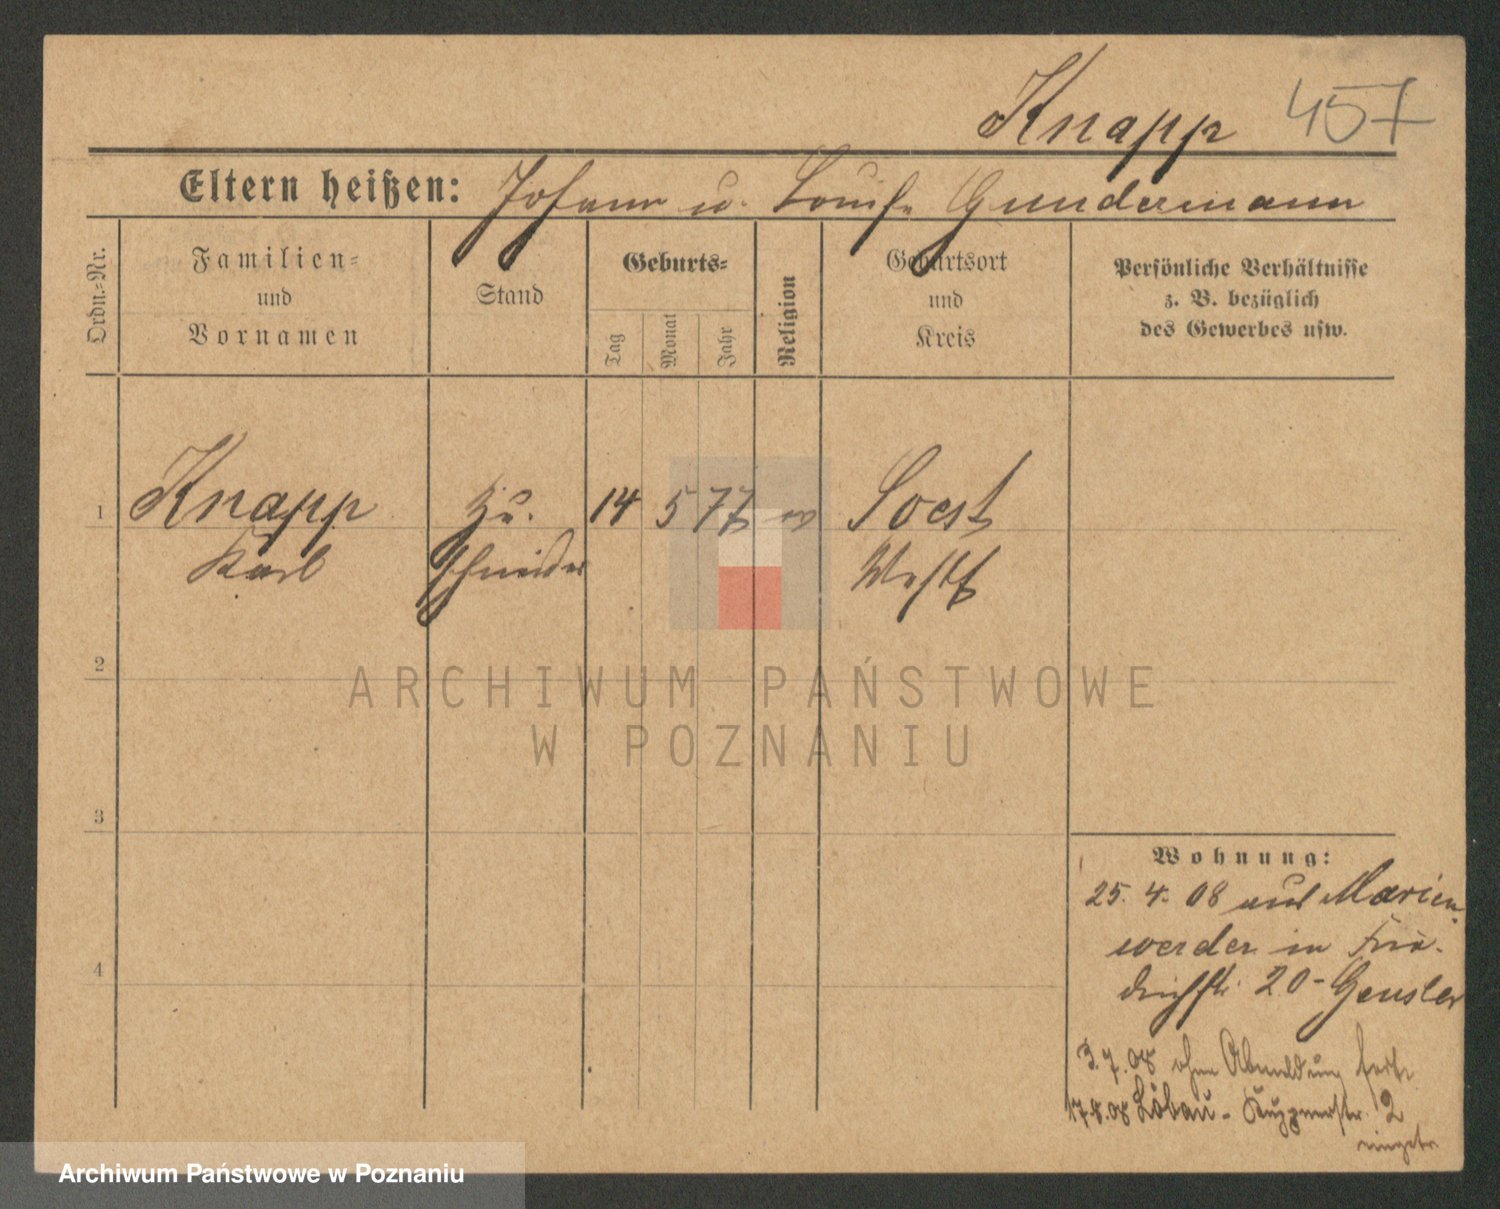 Knapp 457
Eltern heißen: Johann u. Louise Gundermann
Ordn.-Nr.
Familien-
und
Vornamen
Stand
Geburts-
Tag
Monat
Jahr
Religion
Geburtsort
und
Kreis
Persönliche Verhältnisse
z. B. bezüglich
des Gewerbes usw.
1 Knapp 14 5 77 Soest
Karl Schneider Westf
2
3
4
ARCHIWUM PAŃSTWOWE
W POZNANIU
Wohnung:
25. 4. 08 aus Marien
werder in Frie-
drichstr. 20 - Gensler
3.7.08 ohne Abmeldung fort
17.8.08 Löbau - 2
Archiwum Państwowe w Poznaniu